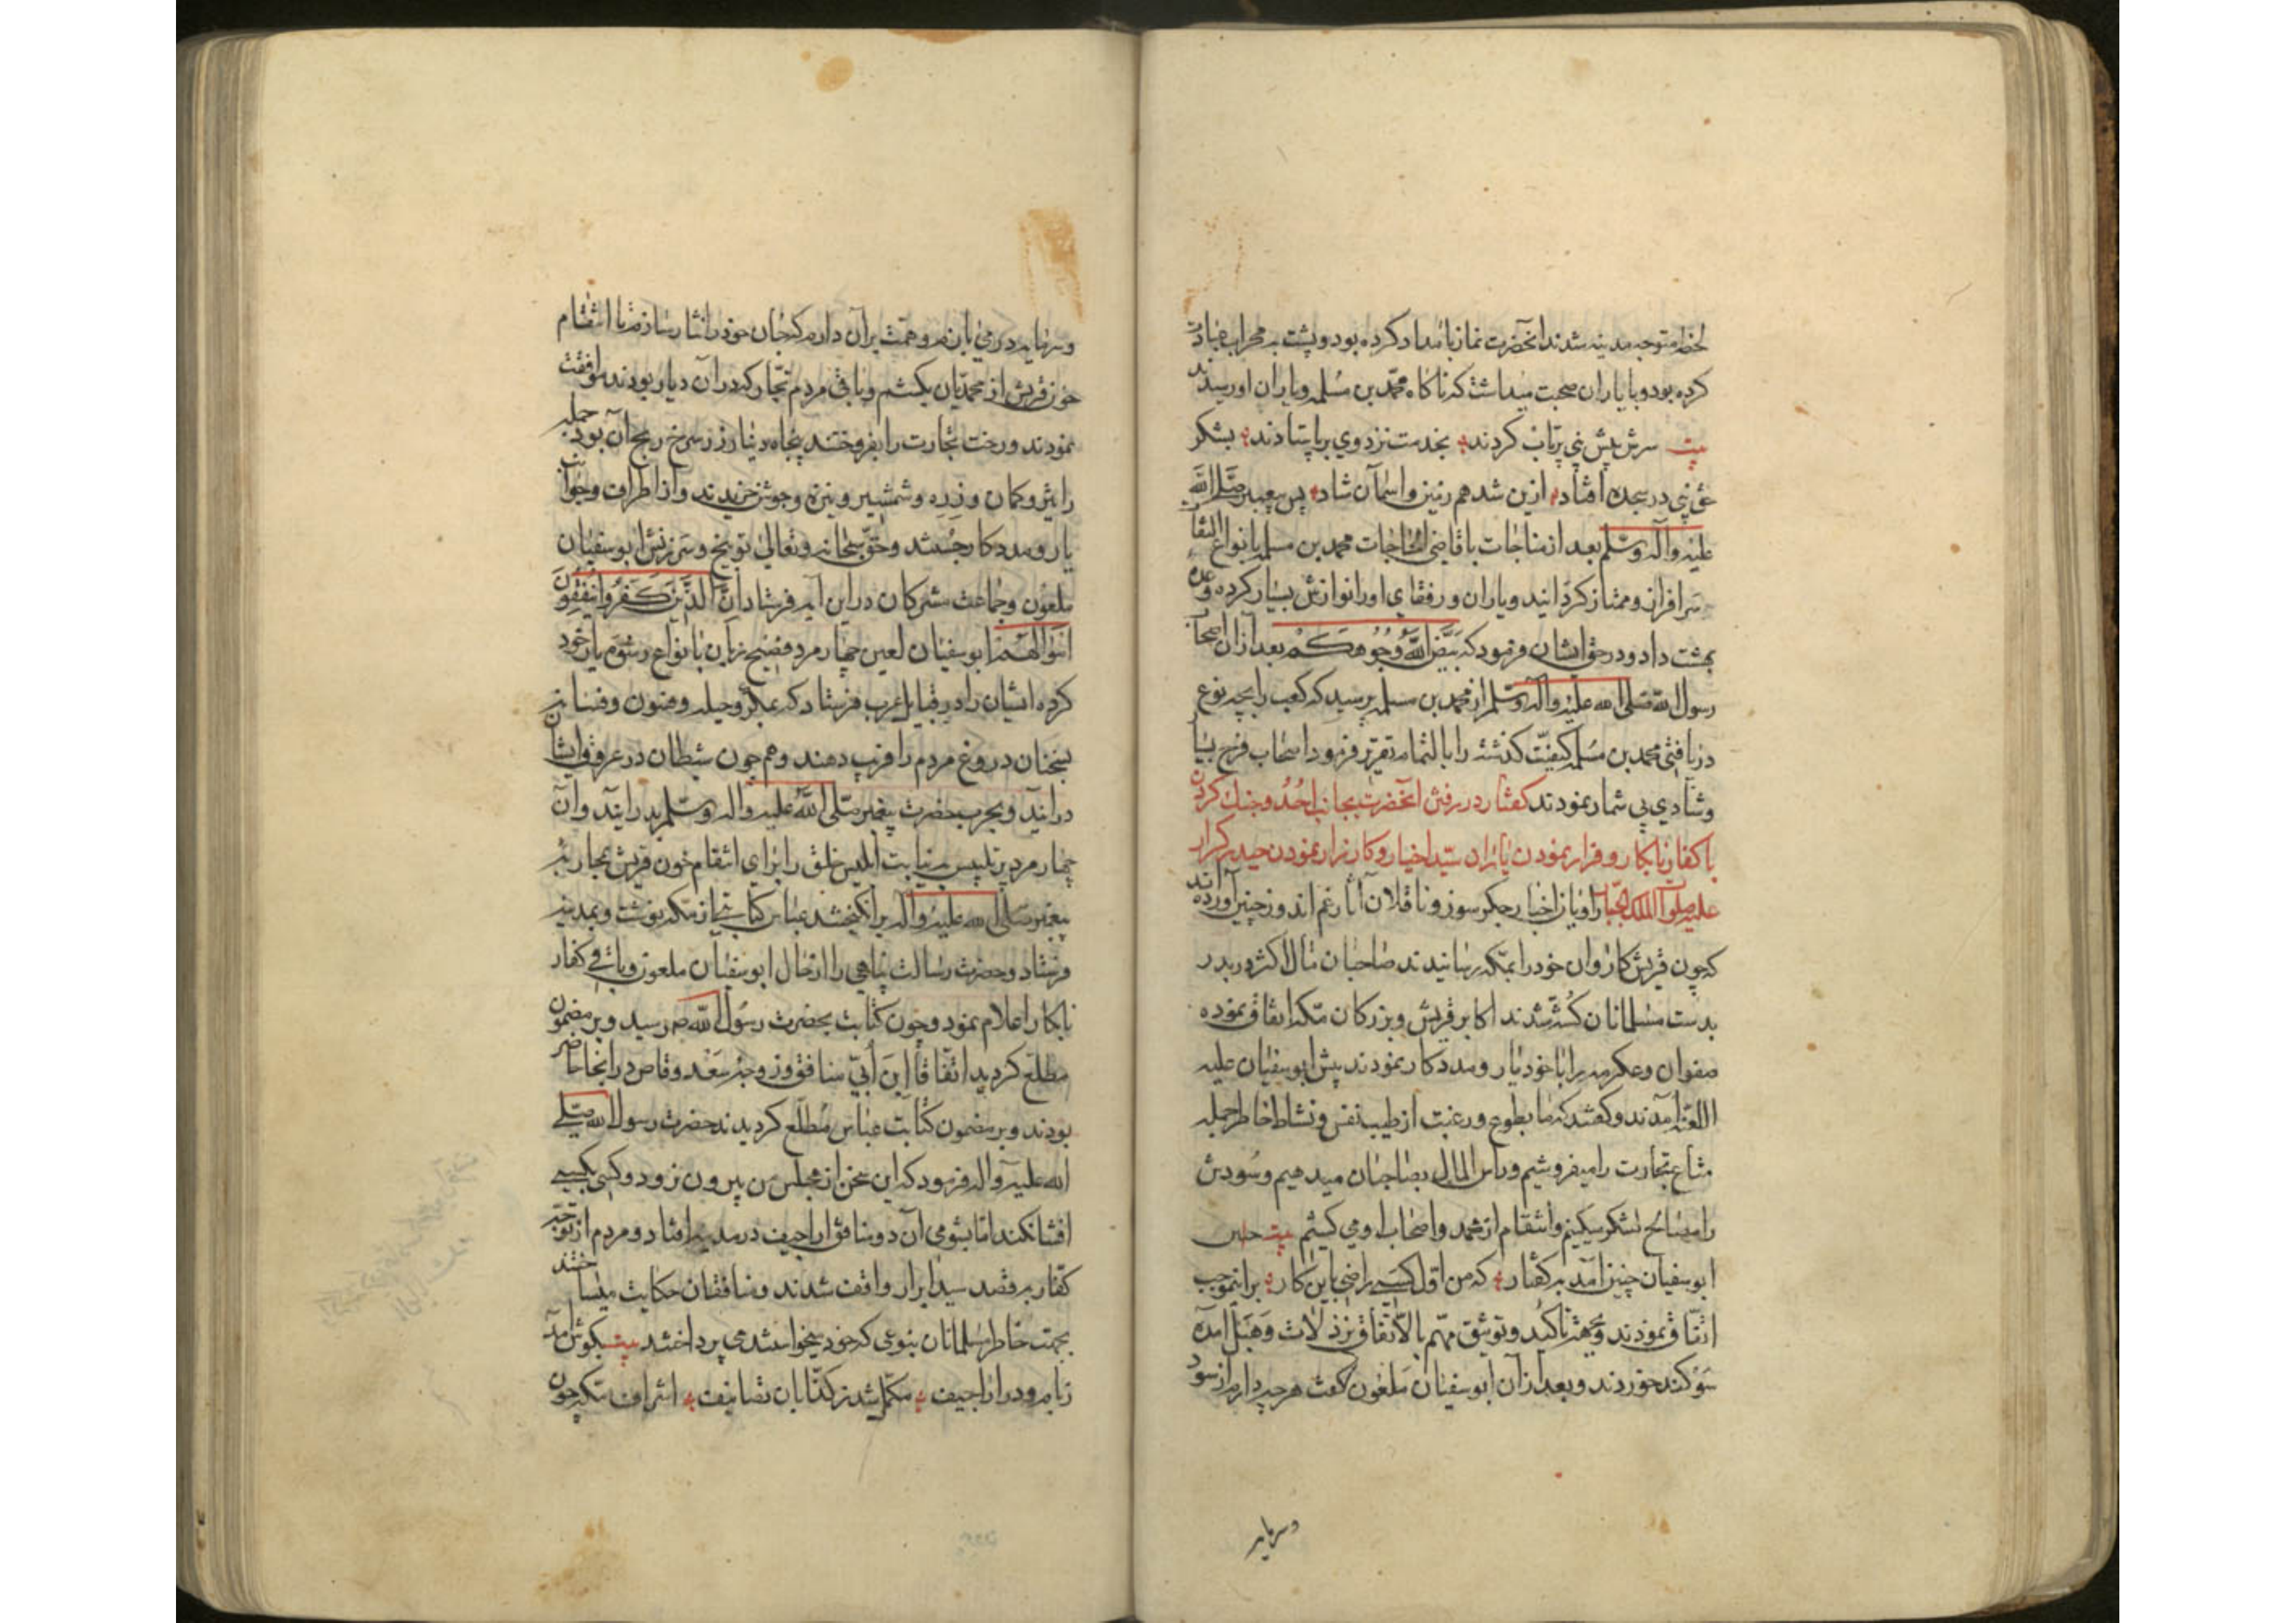 لحظه متوجه مدینه شدند آنحضرت نماز بامداد کرده بود و پشت به محراب عبادت
کرده بود و با یاران صحبت میداشت که ناکاه محمّد بن مسلمه و یاران او رسیدند
بیت سرش پیش نبی پرتاب کردند بخدمت نزد وی بر پا ستادند بشکر
حق نبی در سجده افتاد ازین شد هم زمین و آسمان شاد پس پیغمبر صَلَّی اللَّه
علیه وآله وسَلّم بعد از مناجات با قاضی الحاجات محمد بن مسلمه بانواع التفا
سرافراز و ممتاز کردانید و یاران و رفقای او را نوازش بسیار کرده وعده
بهشت داد و در حق ایشان فرمود که بَیَّضَ اللَّهُ وُجُوهَکُمْ بعد از آن اصحاب
رسول الله صَلی الله علیه وآله وسلّم از محمد بن مسلمه پرسید که کعب را بچه نوع
دریافتی محمد بن مُسلمه کیفیّت کذشته را بالتمام تقریر فرمود اصحاب فرح بسیا
وشادی بی شمار نمودند کفتار در رفتن آنحضرت بجانب اُحُد و جنك کردن
با کفار نابکار و فرار نمودن یاران سیّد اخیار و کارزار نمودن حیدر کرار
علیه صلوات الملك الجبّار راویان اخبار جکر سوز و ناقلان آثار غم اندوز چنین آورده اند
که چون قریش کاروان خود را بمکّه رسانیدند صاحبان مال اکثر در بدر
بدست مسلمانان کُشته شدند اکابر قریش و بزرکان مکّه اتفاق نموده
صفوان و عکرمه را با خود یار و مددکار نمودند پیش ابوسفیان علیه
اللعنة آمدند و کفتند که ما بطوع و رغبت از طیب نفس و نشاط خاطر جمله
متاع تجارت را میفروشیم و راس المال بصاحبان میدهیم و سُودش
را مصالح لشکر میکنیم و انتقام از محمد و اصحاب او می کشیم بیت
ابوسفیان چنین آمد بکفتار که من اول کسی راضی باین کار براینموجب
اتفاق نمودند و بجهة تاکید و توثیق مهم بالاتّفاق نزد لات و هَبَل آمده
سوکند خوردند و بعد از آن ابوسفیان ملعون کفت هر چه دارم از سود
وسرمایه
وسرمایه درمی بازم و همّت بر آن دارم که جان خود را نثار سازم تا انتقام
خون قریش از محمدیان بکشم و باقی مردم تجّار که در آن دیار بودند موافقت
نمودند و رخت تجارت را بفروختند پنجاه دینار زر سرخ ربح آن بود جمله
را تیر و کمان و زره و شمشیر و نیزه و جوشن خریدند و از اطراف و جوانب
یار و مددکار جُستند و حق سبحانه و تعالی توبیخ و سَرزنش ابوسفیان
ملعون و جماعت مشرکان در این آیه فرستاد اِنَّ الَّذینَ کَفَرُوا یُنفِقُونَ
اَمْوالَهُمْ ابوسفیان لعین چهار مرد فصیح زبان بانواع رسُوم یار خود
کرده ایشان را در قبایل عرب فرستاد که بمکر و حیله و فنون و فسانه
بسخنان دروغ مردم را فریب دهند و هم چون شیطان در عروق ایشان
درآیند و بحرب حضرت پیغمبر صلّی اللَّهُ علیه واله وسلّم بدر آیند و آن
چهار مرد پر تلبیس به نیابت ابلیس خلق را برای انتقام خون قریش بمحاربه
پیغمبر صَلَی الله علیه وآله برانکیختند عباس کتابتی از مکه نوشت و بمدینه
فرستاد و حضرت رسالت پناهی را از حال ابوسفیان ملعون و باقی کفار
نابکار اعلام نمود و چون کتابت بحضرت رسُول اللّه ص رسید و بر مضمون
مطلع کردید اتفاقا ابن اُبیّ منافق و زوجه سَعْد وقاص در آنجا حاضر
بودند و بر مضمون کتابت عباس مُطلع کردیدند حضرت رسول الله صَلّی
الله علیه وآله فرمود که این سخن از مجلس من بیرون نرود و کسی بکسی
افشا نکند اما بشومی آن دو منافق اراجیف در مدینه افتاد و مردم از توجّه
کفّار بر قصد سید ابرار واقف شدند و منافقان حکایت میساختند
بجهت خاطر مسلمانان بنوعی که خود میخواستند می پرداختند بیت بکوش آمد
زنا مرد در اراجیف مکمّل شد ز کذّابان تصانیف اشراف مکه چون